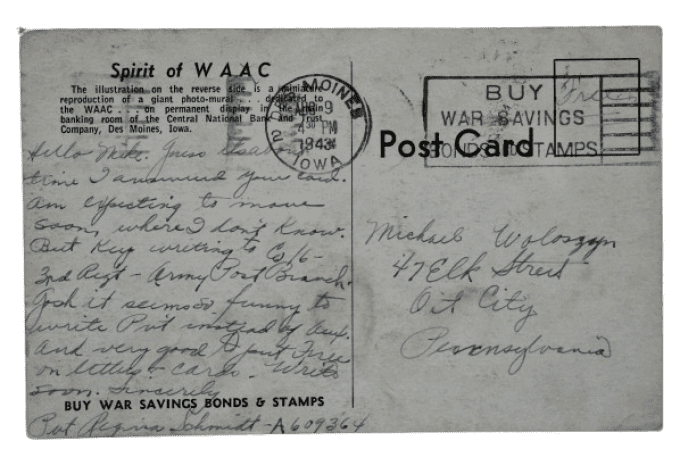 Spirit of WAAC
The illustration on the reverse side is a miniature
reproduction of a giant photo-mural . . . dedicated to
the WAAC . . . on permanent display in the main
banking room of the Central National Bank and Trust
Company, Des Moines, Iowa.
DES MOINES
9
4 30 PM
1943
IOWA
2
BUY
WAR SAVINGS
BONDS AND STAMPS
Free
Post Card
Hello Mike. Guess it's about
time I answered your card.
Am expecting to move
soon, where I don't know.
But Key writing to Co 16 -
3rd Regt - Army Post Branch.
Gosh it seems so funny to
write Pvt instead of Aux.
And very good to put Free
on letters + cards. Write
soon. Sincerely
BUY WAR SAVINGS BONDS & STAMPS
Pvt Regina Schmidt - A609364
Michael Woloszyn
47 Elk Street
Oil City
Pennsylvania